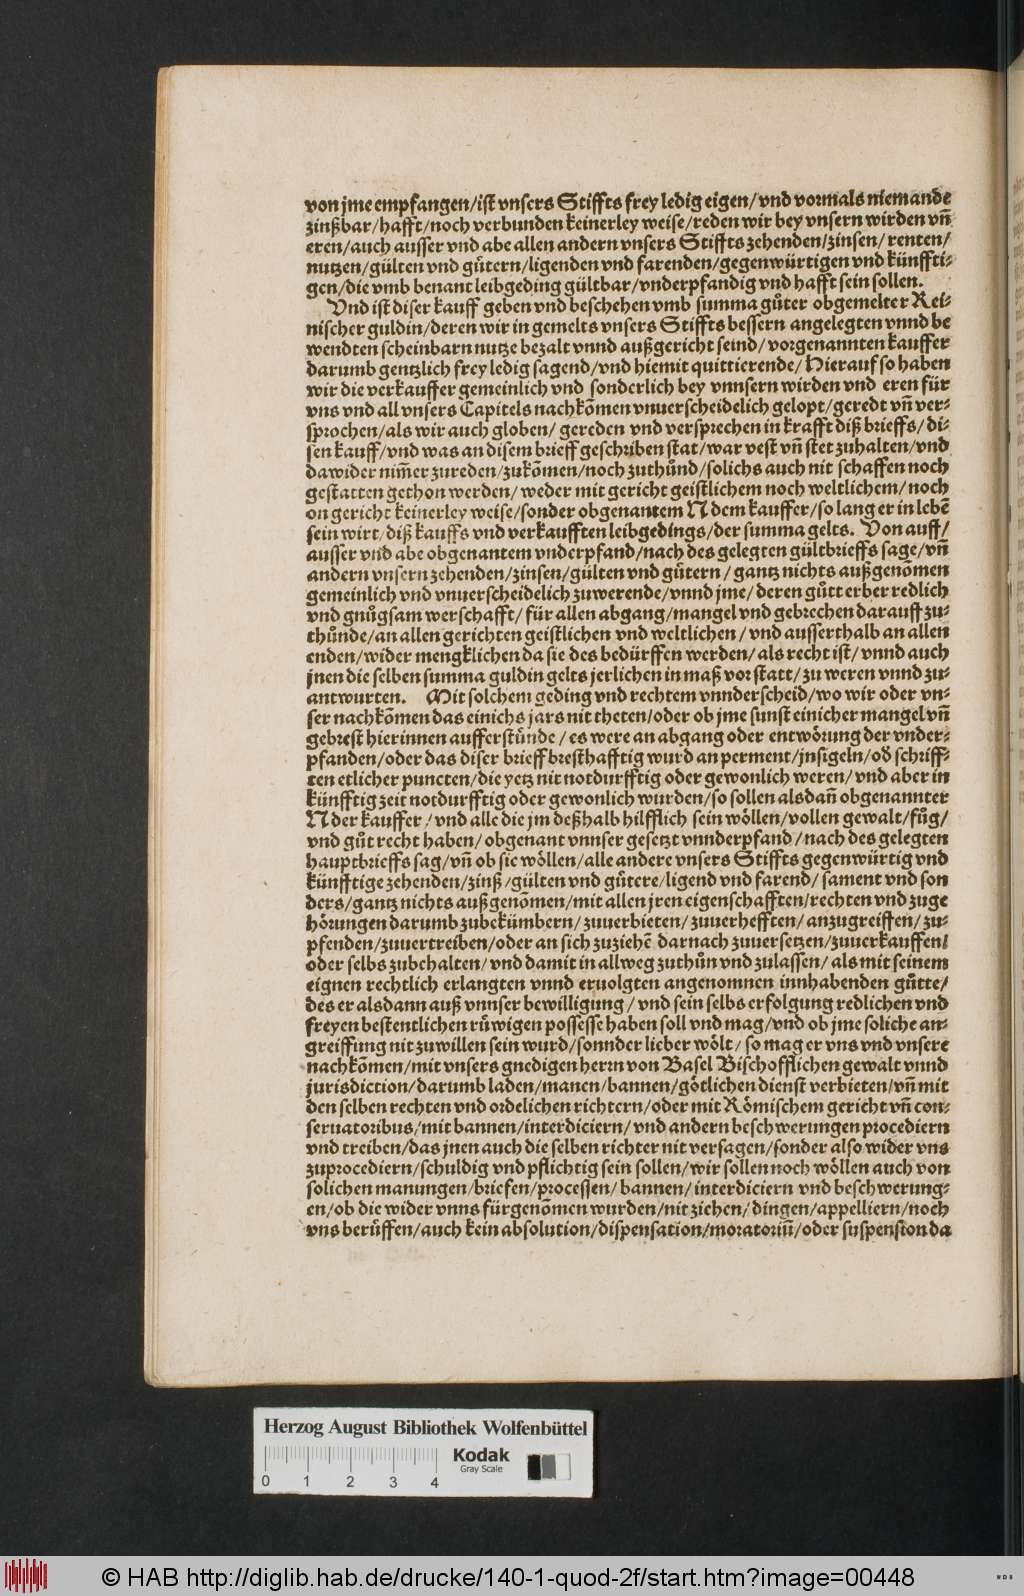 von jme empfangen/ist vnsers Stiffts frey ledig eigen/vnd vormals niemande
zinßbar/hafft/noch verbunden keinerley weise/reden wir bey vnsern wirden vñ
eren/auch ausser vnd abe allen andern vnsers Stiffts zehenden/zinsen/renten/
nutzen/gülten vnd guͤtern/ligenden vnd farenden/gegenwürtigen vnd künffti⸗
gen/die vmb benant leibgeding gültbar/vnderpfandig vnd hafft sein sollen.
Vnd ist diser kauff geben vnd beschehen vmb summa guͦter obgemelter Rei⸗
nischer guldin/deren wir in gemelts vnsers Stiffts bessern angelegten vnnd be
wendten scheinbarn nutze bezalt vnnd außgericht seind/vorgenannten kauffer
darumb gentzlich frey ledig sagend/vnd hiemit quittierende/Hierauf so haben
wir die verkauffer gemeinlich vnd sonderlich bey vnnsern wirden vnd eren für
vns vnd all vnsers Capitels nachkõmen vnuerscheidelich gelopt/geredt vñ ver⸗
sprochen/als wir auch globen/gereden vnd versprechen in krafft diß brieffs/di⸗
sen kauff/vnd was an disem brieff geschriben stat/war vest vñ stet zuhalten/vnd
dawider nim̃er zureden/zukõmen/noch zuthuͦnd/solichs auch nit schaffen noch
gestatten gethon werden/weder mit gericht geistlichem noch weltlichem/noch
on gericht keinerley weise/sonder obgenantem N dem kauffer/so lang er in lebẽ
sein wirt/diß kauffs vnd verkaufften leibgedings/der summa gelts. Von auff/
ausser vnd abe obgenantem vnderpfand/nach des gelegten gültbrieffs sage/vñ
andern vnsern zehenden/zinsen/gülten vnd guͤtern/gantz nichts außgenõmen
gemeinlich vnd vnuerscheidelich zuwerende/vnnd jme/deren guͦtt erber redlich
vnd gnuͦgsam werschafft/für allen abgang/mangel vnd gebrechen darauff zu⸗
thuͦnde/an allen gerichten geistlichen vnd weltlichen/vnd ausserthalb an allen
enden/wider mengklichen da sie des bedürffen werden/als recht ist/vnnd auch
jnen die selben summa guldin gelts jerlichen in maß vor statt/zu weren vnnd zu⸗
antwurten. Mit solchem geding vnd rechtem vnnderscheid/wo wir oder vn⸗
ser nachkõmen das einichs jars nit theten/oder ob jme sunst einicher mangel vñ
gebrest hierinnen aufferstuͤnde/es were an abgang oder entwoͤrung der vnder⸗
pfanden/oder das diser brieff bresthafftig wurd an perment/jnsigeln/od̕ schriff⸗
ten etlicher puncten/die yetz nit notdurfftig oder gewonlich weren/vnd aber in
künfftig zeit notdurfftig oder gewonlich wurden/so sollen alsdañ obgenannter
N der kauffer/vnd alle die jm deßhalb hilfflich sein woͤllen/vollen gewalt/fuͦg/
vnd guͦt recht haben/obgenant vnnser gesetzt vnnderpfand/nach des gelegten
hauptbrieffs sag/vñ ob sie woͤllen/alle andere vnsers Stiffts gegenwürtig vnd
künfftige zehenden/zinß/gülten vnd guͤtere/ligend vnd farend/sament vnd son
ders/gantz nichts außgenõmen/mit allen jren eigenschafften/rechten vnd zuge
hoͤrungen darumb zubekümbern/zuuerbieten/zuuerhefften/anzugreiffen/zu⸗
pfenden/zuuertreiben/oder an sich zuziehẽ darnach zuuersetzen/zuuerkauffen/
oder selbs zubehalten/vnd damit in allweg zuthuͦn vnd zulassen/als mit seinem
eignen rechtlich erlangten vnnd eruolgten angenomnen innhabenden guͤtte/
des er alsdann auß vnnser bewilligung/vnd sein selbs erfolgung redlichen vnd
freyen bestentlichen ruͤwigen possesse haben soll vnd mag/vnd ob jme soliche an⸗
greiffung nit zuwillen sein wurd/sonnder lieber woͤlt/so mag er vns vnd vnsere
nachkõmen/mit vnsers gnedigen herrn von Basel Bischofflichen gewalt vnnd
jurisdiction/darumb laden/manen/bannen/goͤtlichen dienst verbieten/vñ mit
den selben rechten vnd ordelichen richtern/oder mit Roͤmischem gericht vñ con⸗
seruatoribus/mit bannen/interdiciern/vnd andern beschwerungen procediern
vnd treiben/das jnen auch die selben richter nit versagen/sonder also wider vns
zuprocediern/schuldig vnd pflichtig sein sollen/wir sollen noch woͤllen auch von
solichen manungen/briefen/processen/bannen/interdiciern vnd beschwerung⸗
en/ob die wider vnns fürgenõmen wurden/nit ziehen/dingen/appelliern/noch
vns beruͤffen/auch kein absolution/dispensation/moratoriũ/oder suspension da
Herzog August Bibliothek Wolfenbüttel
Kodak
Gray Scale
0 1 2 3 4
© HAB http://diglib.hab.de/drucke/140-1-quod-2f/start.htm?image=00448